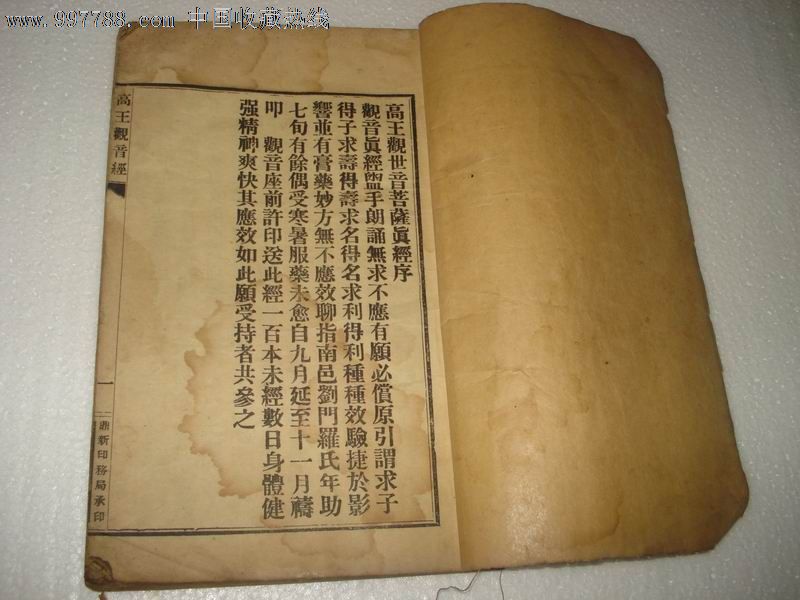 www.997788.com 中国收藏热线
高王觀世音菩薩眞經序
觀音眞經盥手朗誦無求不應有願必償原引謂求子
得子求壽得壽求名得名求利得利種種效驗捷於影
響並有膏藥妙方無不應效聊指南邑劉門羅氏年助
七旬有餘偶受寒暑服藥未愈自九月延至十一月禱
叩 觀音座前許印送此經一百本未經數日身體健
强精神爽快其應效如此願受持者共參之
高王觀音經
一
鼎新印務局承印